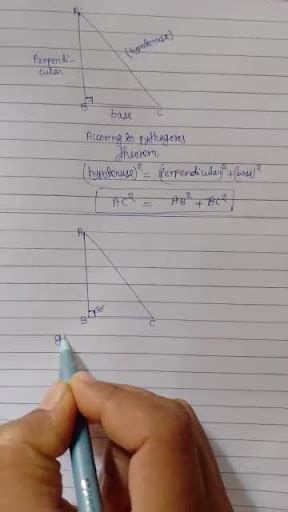 A
Perpendi-
cular
(hypotenuse)
B
C
base
According to pythagores
theorem,
(hypotenuse)² = (Perpendicular)² + (base)²
AC² = AB² + BC²
A
B
90°
C
g